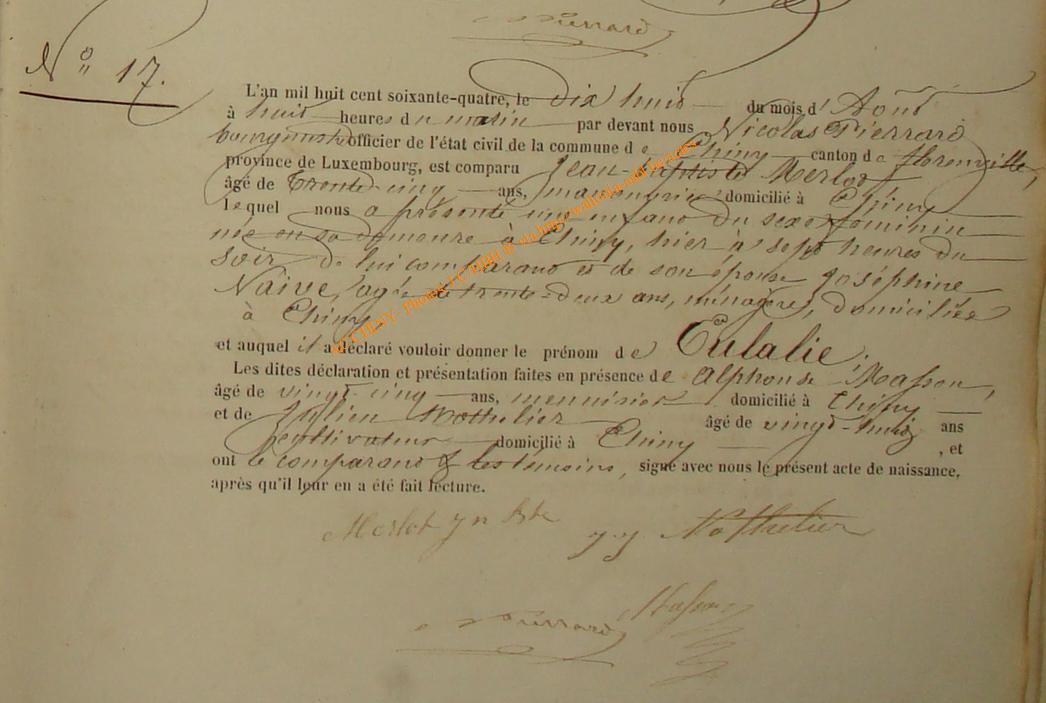 Pierrard
N° 17.
L'an mil huit cent soixante-quatre, le dix huit du mois d'Août
à huit heures du matin par devant nous Nicolas Pierrard
bourgmestre officier de l'état civil de la commune de Chiny canton de florenville,
province de Luxembourg, est comparu Jean-Baptiste Merlot
âgé de trente-cinq ans, domicilié à Chiny
lequel nous a présenté une enfant du sexe féminin
née en sa demeure à Chiny, hier à sept heures du
soir de lui comparant et de son épouse Joséphine
Naive, agée de trente-deux ans, ménagère, domiciliée
à Chiny
et auquel il a déclaré vouloir donner le prénom de Eulalie.
Les dites déclaration et présentation faites en présence de Alphonse Masson,
âgé de vingt-cinq ans, menuisier domicilié à Chiny
et de Julien Nothelier âgé de vingt-huit ans
cultivateur domicilié à Chiny , et
ont le comparant & les temoins, signé avec nous le présent acte de naissance,
après qu'il leur en a été fait lecture.
Merlot Jn Bte
J. J. Nothelier
Masson
Pierrard